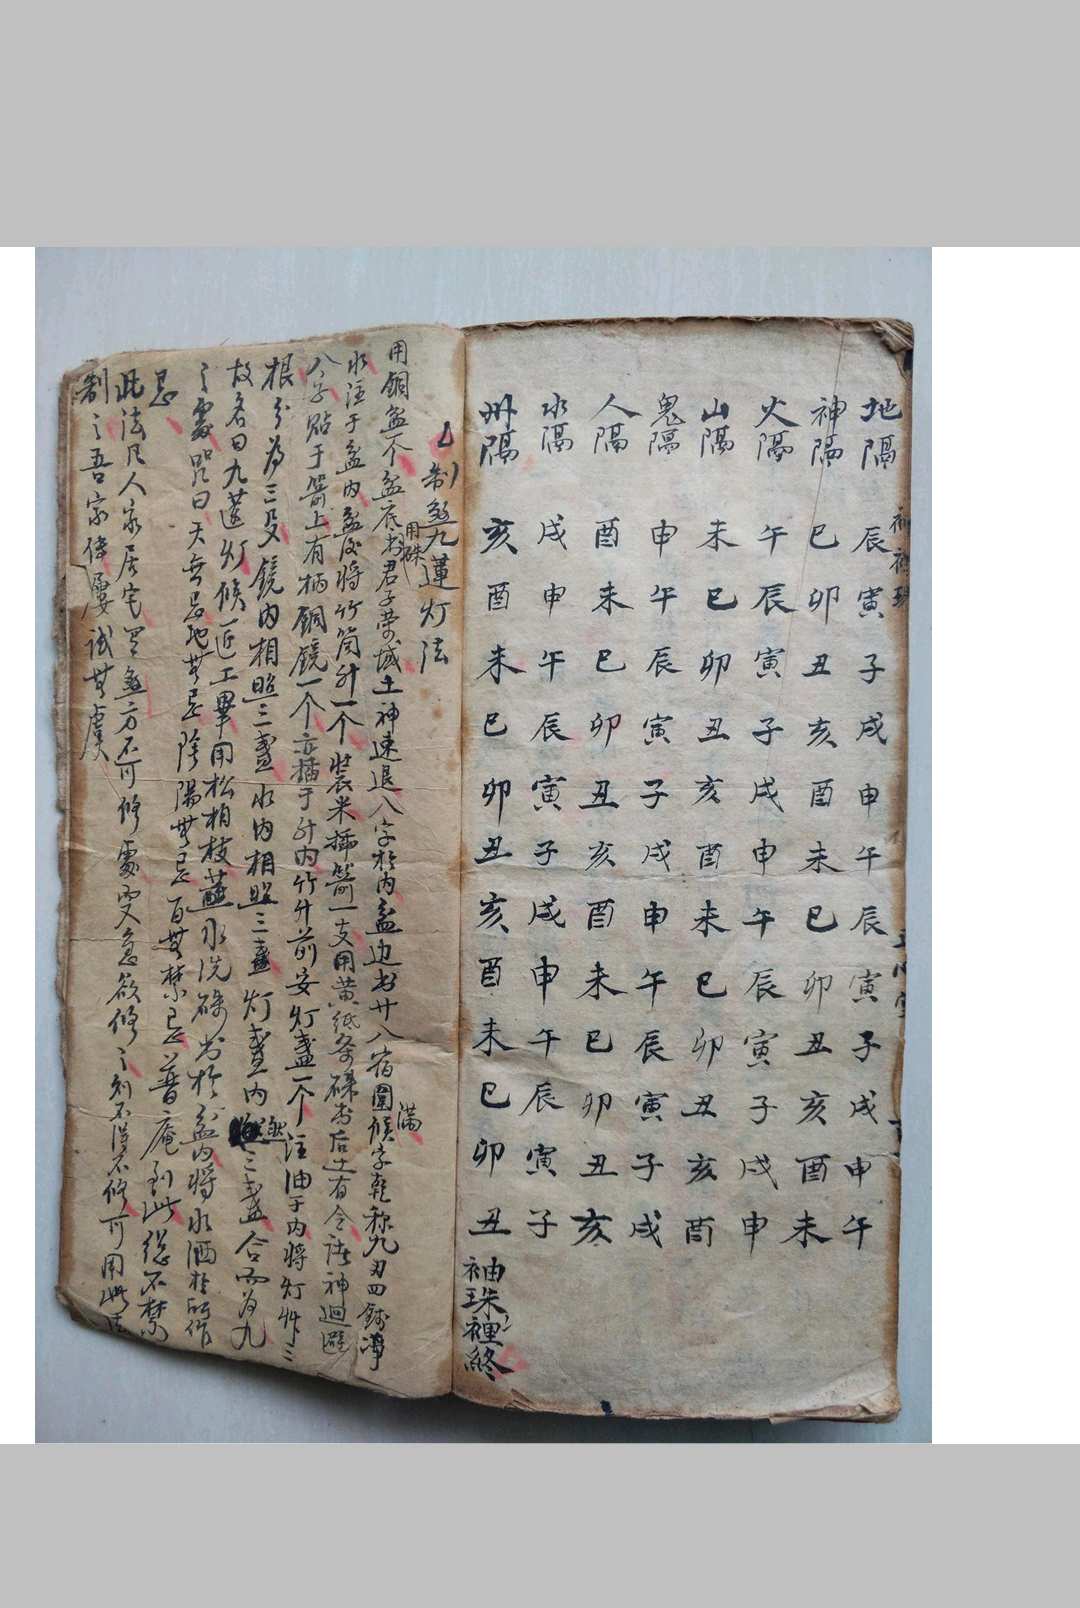 地隔 辰寅子戌申午辰寅子戌申午
神隔 巳卯丑亥酉未巳卯丑亥酉未
火隔 午辰寅子戌申午辰寅子戌申
山隔 未巳卯丑亥酉未巳卯丑亥酉
鬼隔 申午辰寅子戌申午辰寅子戌
人隔 酉未巳卯丑亥酉未巳卯丑亥
水隔 戌申午辰寅子戌申午辰寅子
州隔 亥酉未巳卯丑亥酉未巳卯丑
袖珠裡終
制煞九蓮灯法
用硃
用銅盆一个盆底书君子带城土神速退八字於内盆边书廿八宿圍候字乾称九丑四錢淨
满
水注于盆内盆后将竹筒升一个装米插箭一支用黄纸条硃书后土有令诸神迴避
八字貼于箭上有柄銅鏡一个亦插于升内竹升前安灯盏一个注油于内将灯草三
根分为三段鏡内相照三盏水内相照三盏灯盏内三盏合而为九
故名曰九莲灯候匠工畢用松柏枝蘸水洗硃书於盆内将水洒於所作
之處咒曰天無忌地無忌陰陽無忌百無禁忌普庵到此總不禁
忌
此法凡人家居宅罡煞方不可修處又急欲修之刻不得不修可用此法
制之吾家傳屢試無虞